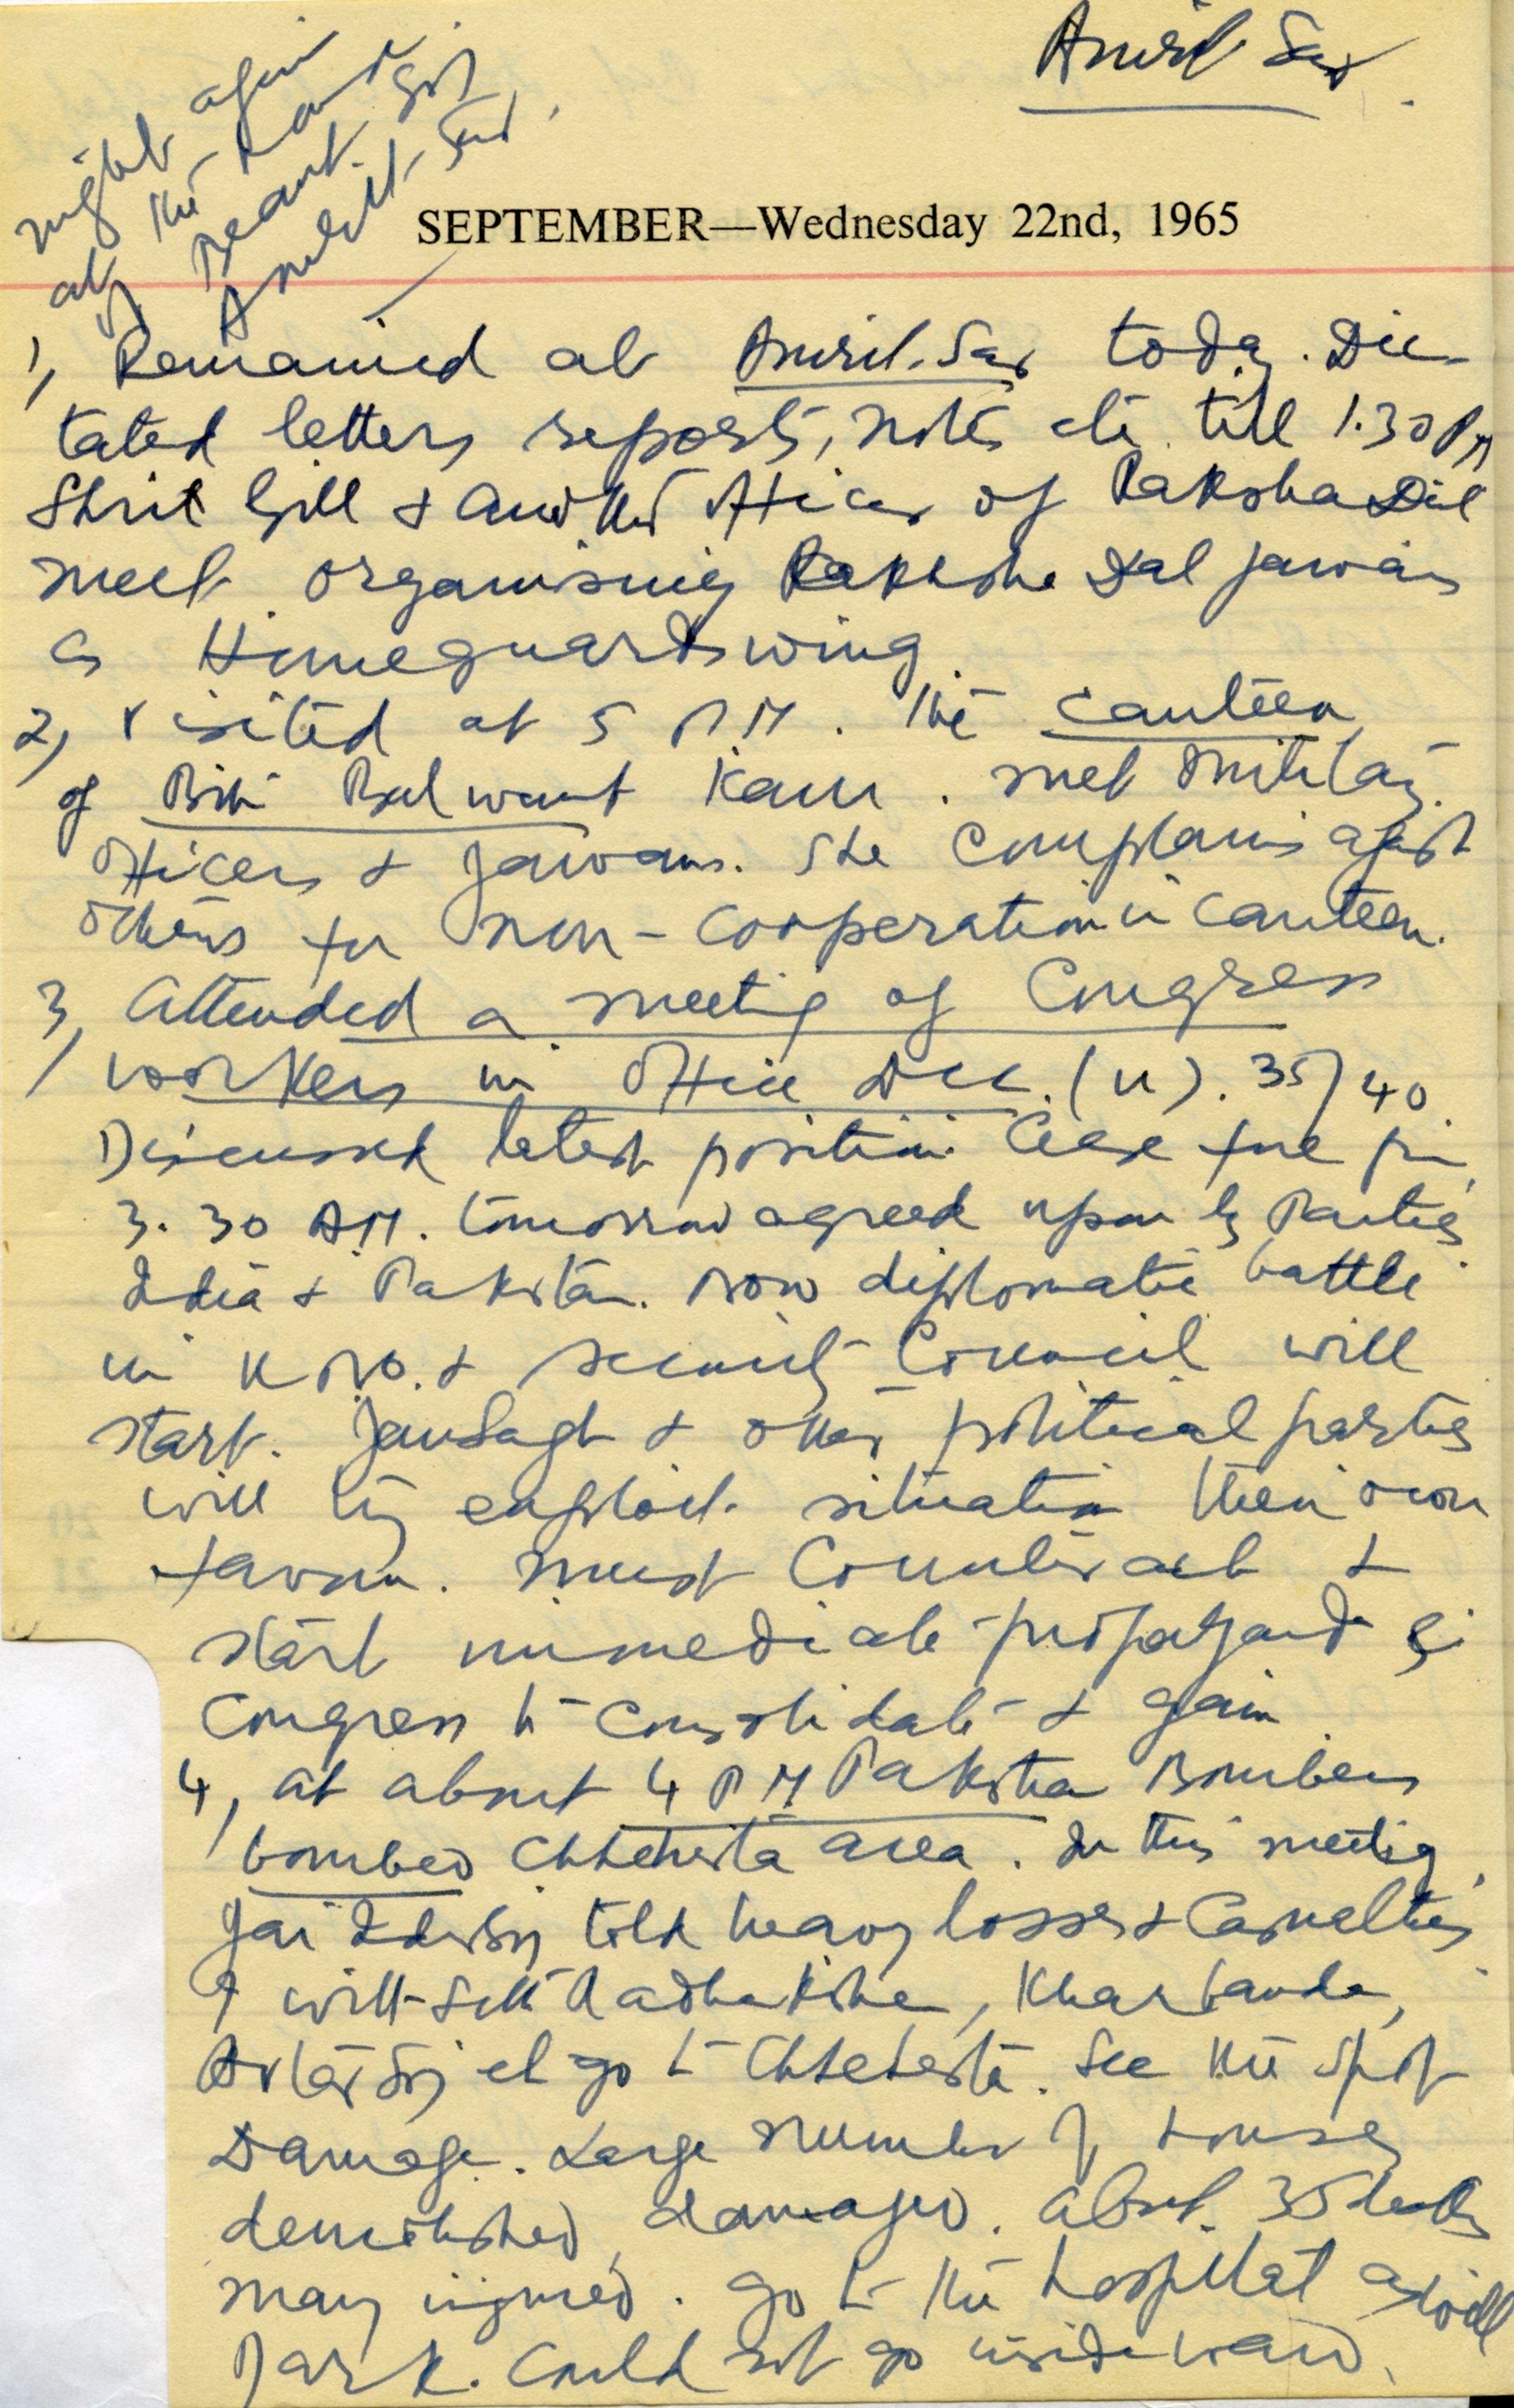 Amrit Sar
night again
at the
of Beant Sing
Amrit Sar.
SEPTEMBER—Wednesday 22nd, 1965
1, Remained at Amrit.Sar today. Dic-
tated letters reports, notes etc. till 1.30 PM
Shri Gill & another officer of Raksha Dal
meet. organising Raksha Dal jawans
as Homeguards wing.
2, Visited at 5 P.M. the canteen
of Bibi Balwant Kaur. met military
officers & Jawans. She complains against
others for non-cooperation in canteen.
3, Attended a meeting of Congress
workers in office DCC (U). 35/40.
Discussed latest position. Cease fire from
3.30 AM. tomorrow agreed upon by Parties
India & Pakistan. Now diplomatic battle
in UNO. & Security Council will
start. JanSagh & other political parties
will try exploit situation their own
favour. must Counteract &
start immediate propaganda by
Congress to consolidate & gain.
4, at about 4 PM Pakistan Bombers
bombed Chheharta area. In this meeting
Jai Inder Sing told heavy losses & Casualties
I with Radha Kishen, Kharbanda,
Avtar Sing et go to Chheharta. See the spot
Damage. Large number of houses
demolished, damaged. about. 35 deaths
many injured. go to the hospital
Dark. Could not go inside ward.